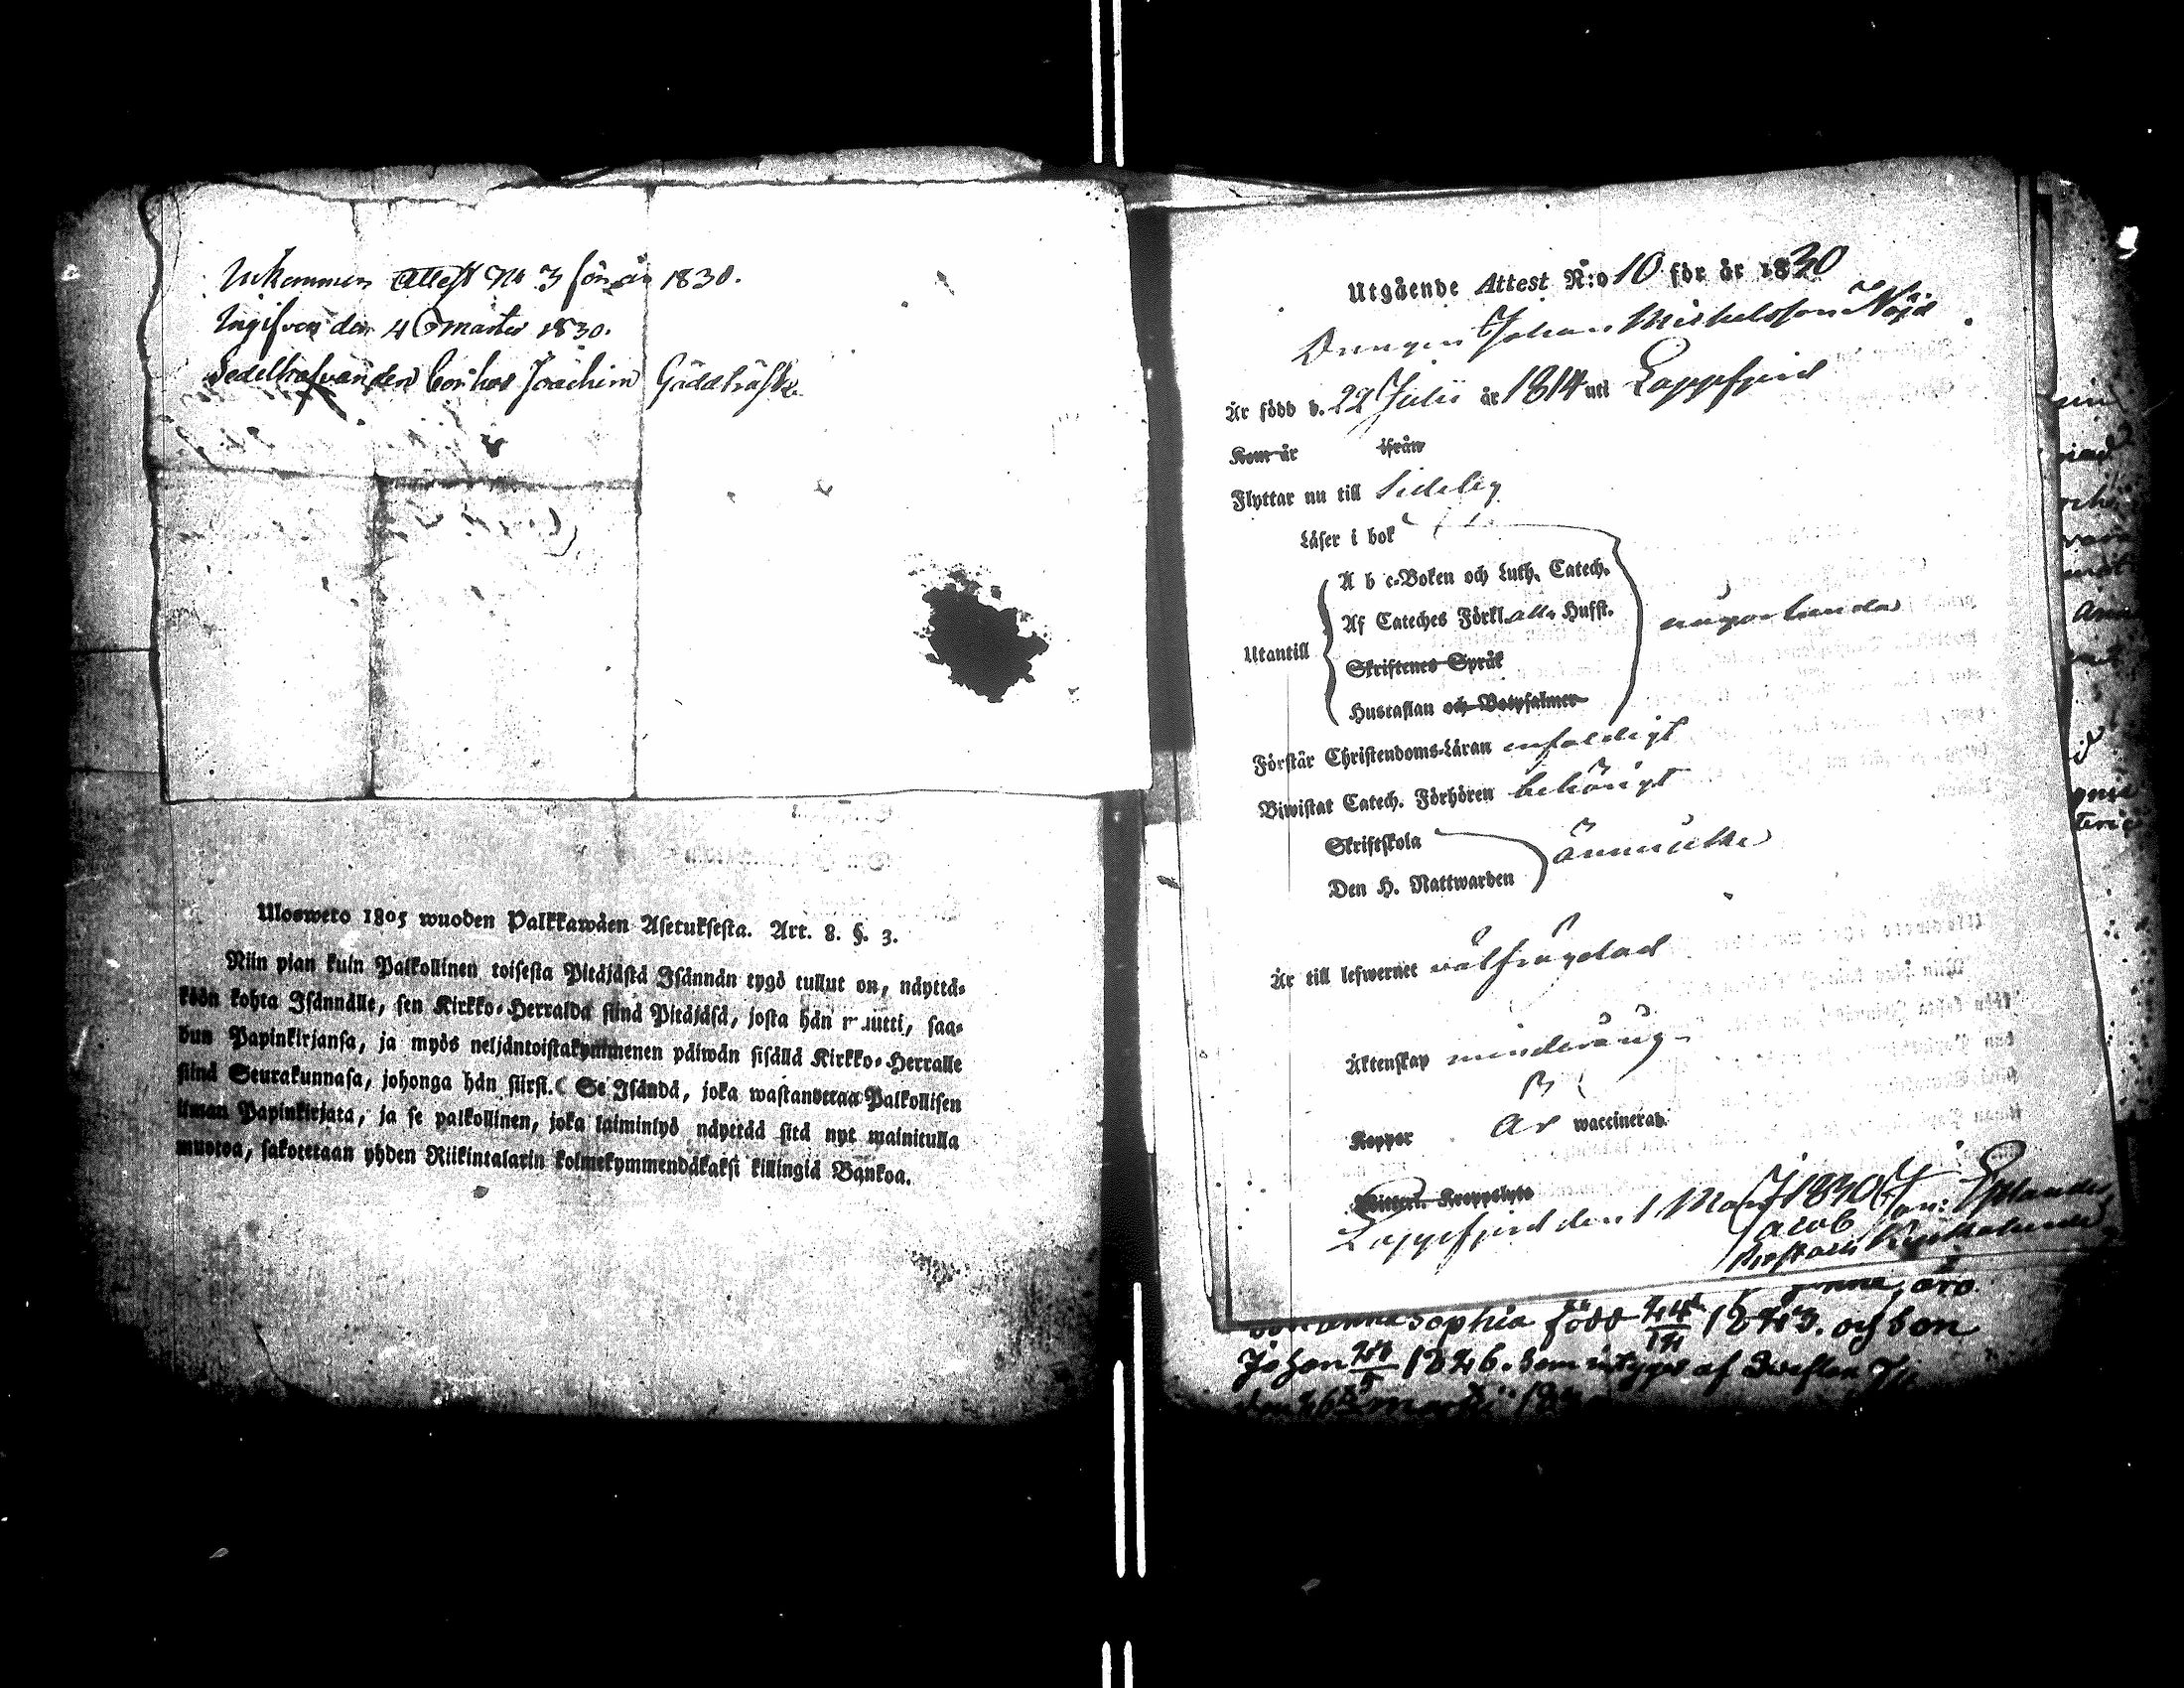 Inkommen Attest No 3 för år 1830.
Ingifven den 4 Martii 1830.
Joachim Gäddträsk
Uloswето 1805 wuoden Palkkawäen Asetuksesta. Art. 8. §. 3.
Niin pian kuin Palkollinen toisesta Pitäjästä Isännän tygö tullut on, näyttä-
köön kohta Isännälle, sen Kirkko-Herralda siinä Pitäjäsä, josta hän muutti, saa-
dun Papinkirjansa, ja myös neljäntoistakymmenen päiwän sisällä Kirkko-Herralle
siinä Seurakunnasa, johonga hän siirsi. Se Isändä, joka wastanottaa Palkollisen
ilman Papinkirjata, ja se palkollinen, joka laiminlyö näyttää sitä nyt mainitulla
muotoa, sakotetaan yhden Riikintalarin kolmekymmendäkaksi killingiä Bankoa.
Utgående Attest N:o 10 för år 1830
Drengen Johan Michelsson Nöjd
Är född d. 22 Julii år 1814 uti Lappfjerd
Kom år ifrån
Flyttar nu till Sideby
Läser i bok
A b c-Boken och Luth. Catech.
Af Cateches Förkl. alla Hufst.
Utantill
Skriftenes Språk
Hustaflan och Botpsalmer
någorlunda
Förstår Christendoms-Läran enfaldigt
Biwistat Catech. Förhören behörigt
Skriftskola
Den H. Nattwarden
Är till lefwernet wälfrägdad
Äktenskap minderårig
Koppor Är waccinerad.
Lappfjerd den 1 Mart 1830
Jacob Estlander
Sophia född 1843. och son
Johan 1846. Som intygas af